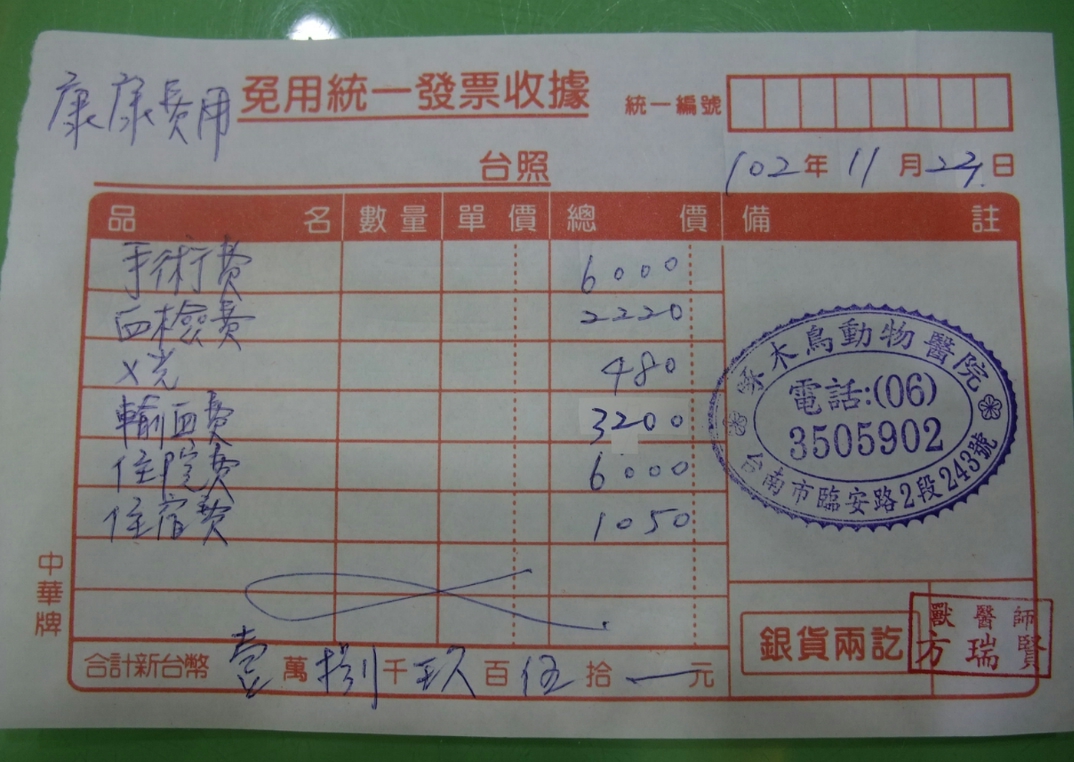 康康費用 免用統一發票收據 統一編號
台照 102年11月27日
品名 數量 單價 總價 備註
手術費 6000
血檢費 2220
X光 480
輸血費 3200
住院費 6000
住宿費 1050
啄木鳥動物醫院
電話:(06)
3505902
台南市臨安路2段243號
中華牌
銀貨兩訖
獸醫師
方瑞賢
合計新台幣 壹萬捌千玖百伍拾一元